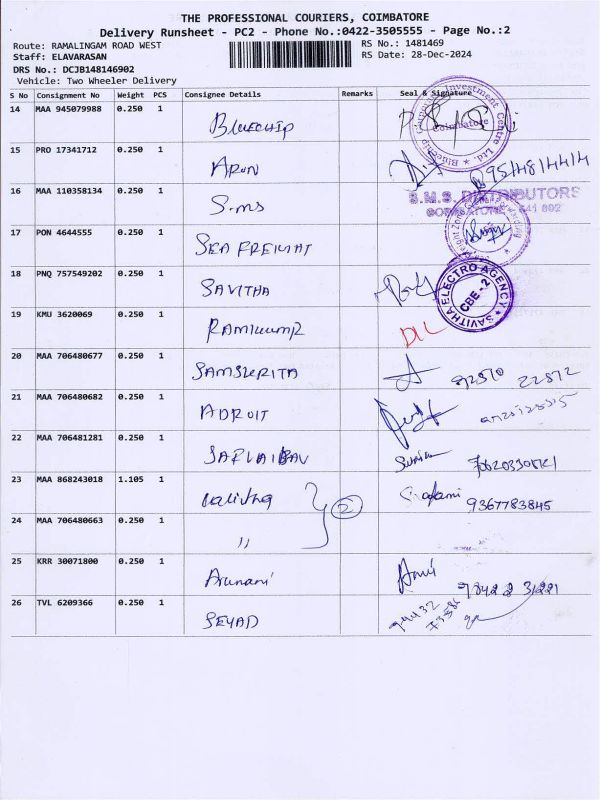 THE PROFESSIONAL COURIERS, COIMBATORE
Delivery Runsheet - PC2 - Phone No.:0422-3505555 - Page No.:2
Route: RAMALINGAM ROAD WEST
RS No.: 1481469
Staff: ELAVARASAN
RS Date: 28-Dec-2024
DRS No.: DCJB148146902
Vehicle: Two Wheeler Delivery
S No Consignment No Weight PCS Consignee Details Remarks Seal & Signature
14 MAA 945079988 0.250 1 BLUECHIP
Bluechip Corporate Investment Centre Ltd. Coimbatore
15 PRO 17341712 0.250 1 ARUN
16 MAA 110358134 0.250 1 S.MS S.M.S. DISTRIBUTORS
17 PON 4644555 0.250 1 SEA FREIGHT
18 PNQ 757549202 0.250 1 SAVITHA
SAVITHA ELECTRO AGENCY CBE - 2
19 KMU 3620069 0.250 1 DIL
20 MAA 706480677 0.250 1 SAMSKRITA
21 MAA 706480682 0.250 1 ADROIT
22 MAA 706481281 0.250 1
23 MAA 868243018 1.105 1 Lalitha 2 9367783845
24 MAA 706480663 0.250 1 "
25 KRR 30071800 0.250 1
26 TVL 6209366 0.250 1 SEYAD